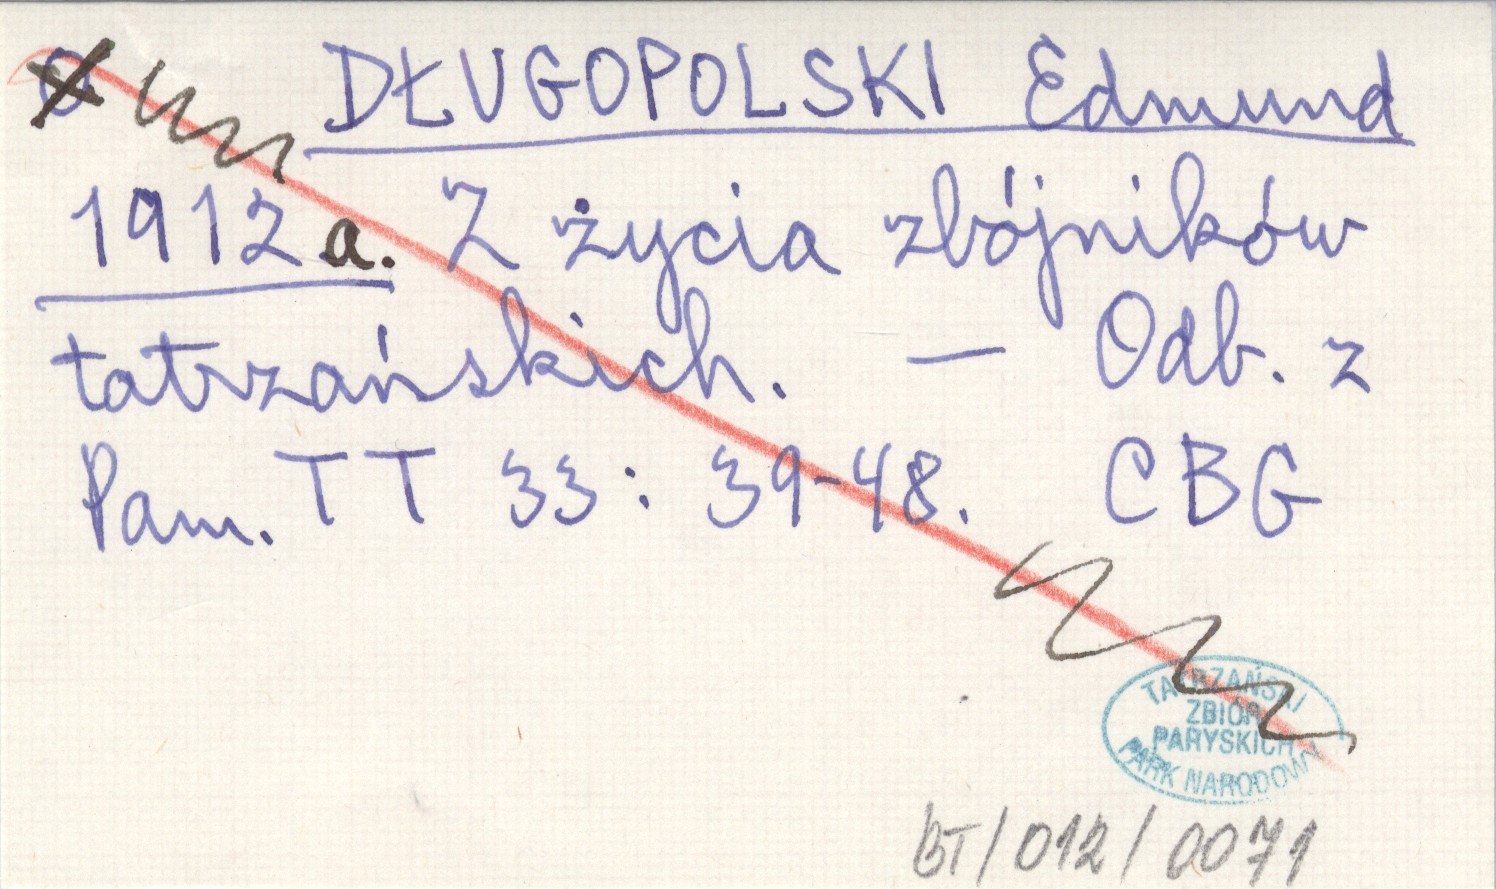 DŁUGOPOLSKI Edmund
1912a. Z życia zbójników
tatrzańskich. — Odb. z
Pam. TT 33: 39-48. CBG
TATRZAŃSKI
ZBIÓR
PARYSKICH
PARK NARODOWY
BT/012/0071